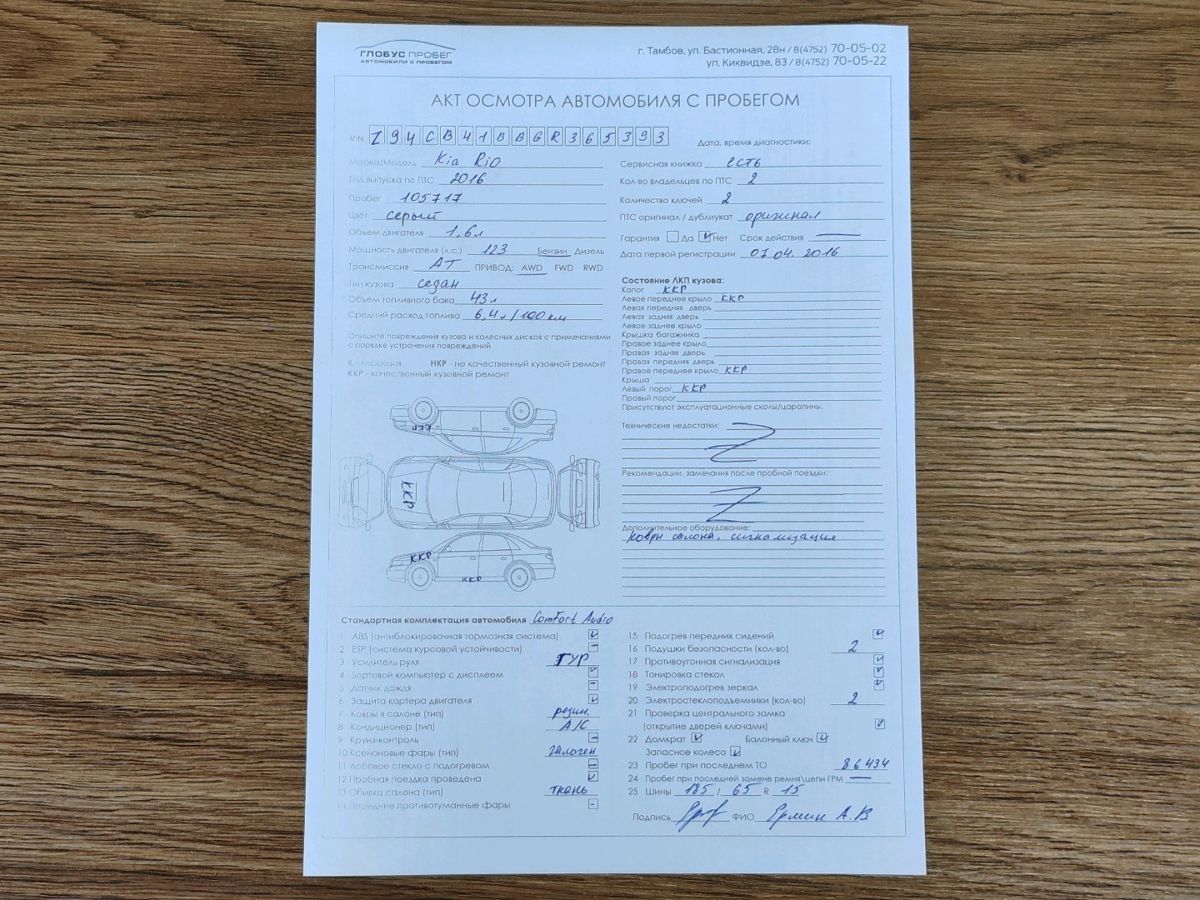 ГЛОБУС ПРОБЕГ
АВТОМОБИЛИ С ПРОБЕГОМ
г. Тамбов, ул. Бастионная, 28н / 8(4752) 70-05-02
ул. Киквидзе, 83 / 8(4752) 70-05-22
АКТ ОСМОТРА АВТОМОБИЛЯ С ПРОБЕГОМ
VIN Z94CB41BBGR365393
Дата, время диагностики:
Марка/Модель Kia Rio
Год выпуска по ПТС 2016
Пробег 105717
Цвет серый
Объем двигателя 1,6л
Мощность двигателя (л.с.) 123 Бензин Дизель
Трансмиссия АТ ПРИВОД: AWD FWD RWD
Тип кузова седан
Объем топливного бака 43л
Средний расход топлива 6,4л/100км
Опишите повреждения кузова и колесных дисков с примечаниями
о порядке устранения повреждений
К - коррозия НКР - не качественный кузовной ремонт
ККР - качественный кузовной ремонт
Сервисная книжка есть
Кол-во владельцев по ПТС 2
Количество ключей 2
ПТС оригинал / дубликат оригинал
Гарантия Да Нет Срок действия —
Дата первой регистрации 07.04.2016
Состояние ЛКП кузова:
Капот ККР
Левое переднее крыло ККР
Левая передняя дверь
Левая задняя дверь
Левое заднее крыло
Крышка багажника
Правое заднее крыло
Правая задняя дверь
Правая передняя дверь
Правое переднее крыло ККР
Крыша
Левый порог ККР
Правый порог
Присутствуют эксплуатационные сколы/царапины.
Технические недостатки:
Рекомендации, замечания после пробной поездки:
Дополнительное оборудование:
Ковры салона, сигнализация
ККР
ККР
ККР
ККР
Стандартная комплектация автомобиля Comfort Audio
1 ABS (антиблокировочная тормозная система)
2 ESP (система курсовой устойчивости)
3 Усилитель руля ГУР
4 Бортовой компьютер с дисплеем
5 Датчик дождя
6 Защита картера двигателя
7 Ковры в салоне (тип) резин.
8 Кондиционер (тип) A/C
9 Круиз-контроль
10 Ксеноновые фары (тип) Галоген
11 Лобовое стекло с подогревом
12 Пробная поездка проведена
13 Обивка салона (тип) ткань
14 Передние противотуманные фары
15 Подогрев передних сидений
16 Подушки безопасности (кол-во) 2
17 Противоугонная сигнализация
18 Тонировка стекол
19 Электроподогрев зеркал
20 Электростеклоподъемники (кол-во) 2
21 Проверка центрального замка
(открытие дверей ключами)
22 Домкрат Балонный ключ
Запасное колесо
23 Пробег при последнем ТО 86434
24 Пробег при последней замене ремня\цепи ГРМ —
25 Шины 185 / 65 R 15
Подпись ФИО Ермин А.В